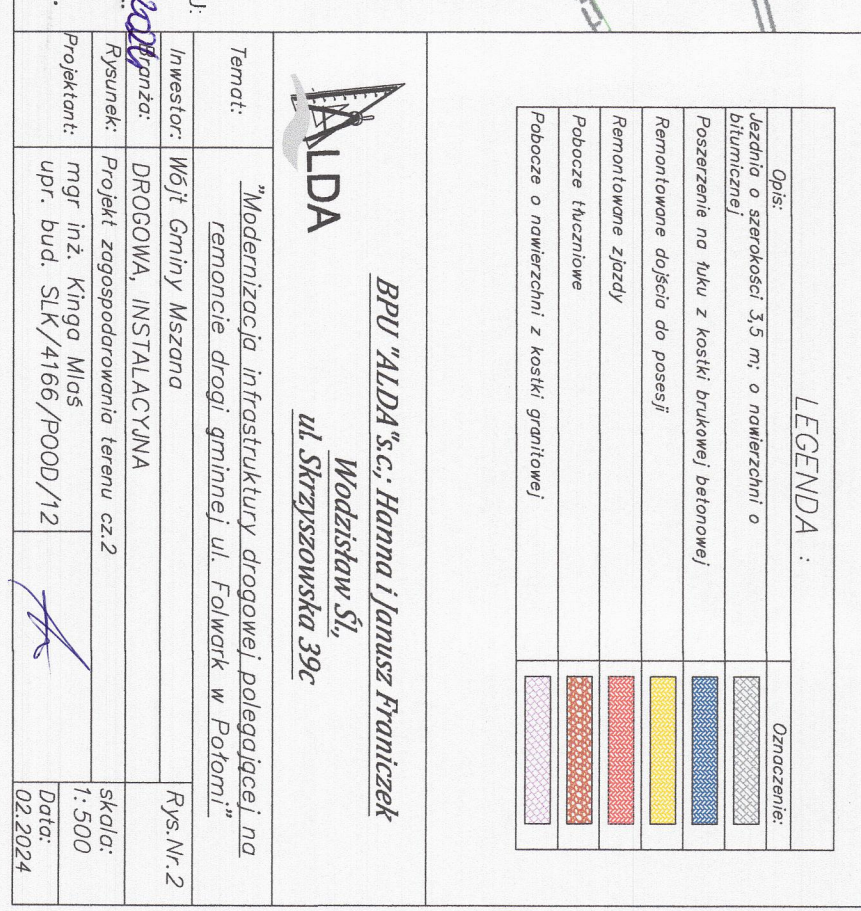 LEGENDA :
Opis: Oznaczenie:
Jezdnia o szerokości 3,5 m; o nawierzchni o
bitumicznej
Poszerzenie na łuku z kostki brukowej betonowej
Remontowane dojścia do posesji
Remontowane zjazdy
Pobocze tłuczniowe
Pobocze o nawierzchni z kostki granitowej
BPU "ALDA"s.c.; Hanna i Janusz Franiczek
Wodzisław Śl.,
ul. Skrzyszowska 39c
ALDA
Temat:
"Modernizacja infrastruktury drogowej polegającej na
remoncie drogi gminnej ul. Folwark w Połomi"
Inwestor: Wójt Gminy Mszana
Rys.Nr.2
Branża: DROGOWA, INSTALACYJNA
Rysunek: Projekt zagospodarowania terenu cz.2
skala:
1: 500
Projektant: mgr inż. Kinga Mlaś
upr. bud. SLK/4166/POOD/12
Data:
02.2024